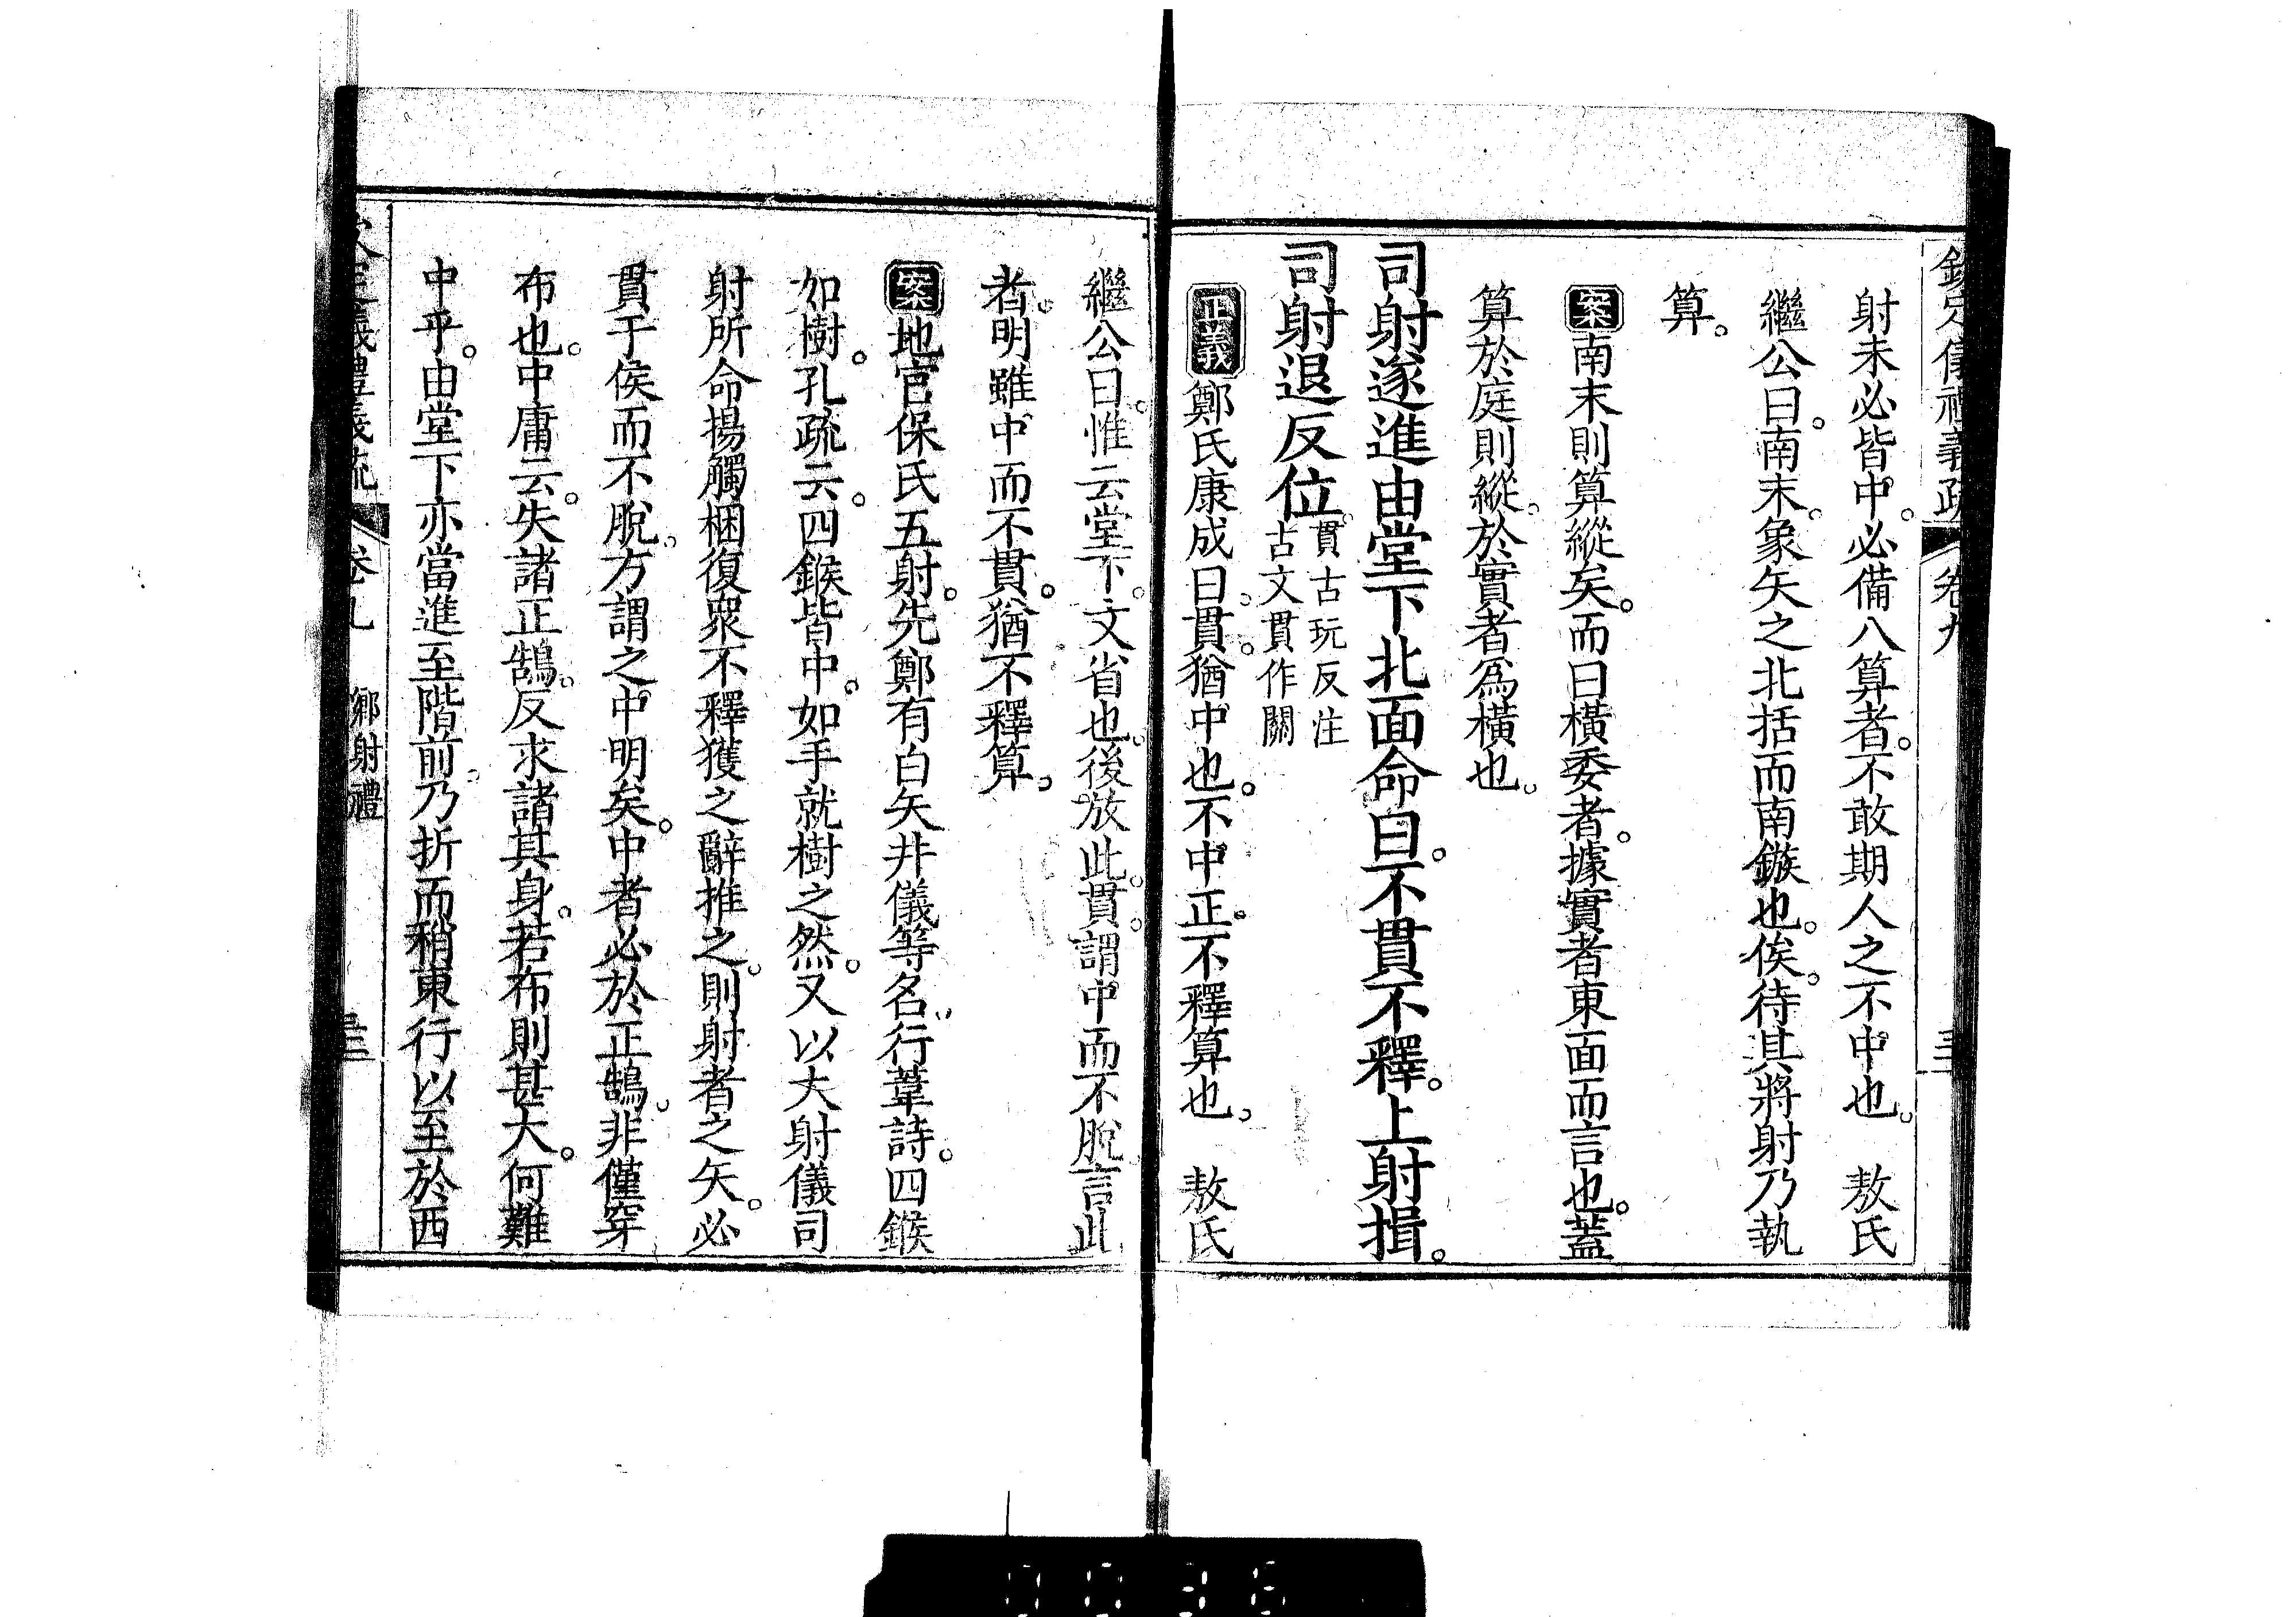 欽定儀禮義疏 卷九
射未必皆中。必備八算者。不敢期人之不中也。 敖氏
繼公曰。南末。象矢之北括而南鏃也。俟。待其將射乃執
算。
案南末則算縱矣。而曰橫委者。據實者東面而言也。蓋
算於庭則縱。於實者爲橫也。
司射遂進由堂下北面命曰。不貫不釋。上射揖。
司射退反位。貫古玩反注
古文貫作關
正義鄭氏康成曰。貫。猶中也。不中正。不釋算也。 敖氏
繼公曰。惟云堂下。文省也。後放此。貫。謂中而不脫。言此
者。明雖中而不貫。猶不釋算。
案地官保氏五射。先鄭有白矢井儀等名。行葦詩。四鍭
如樹。孔疏云。四鍭皆中。如手就樹之然。又以大射儀司
射所命揚觸梱復衆不釋獲之辭推之。則射者之矢。必
貫于侯而不脫。方謂之中明矣。中者必於正鵠。非僅穿
布也。中庸云。失諸正鵠。反求諸其身。若布則甚大。何難
中乎。由堂下亦當進至階前。乃折而稍東行以至於西
欽定儀禮義疏 卷九 鄉射禮